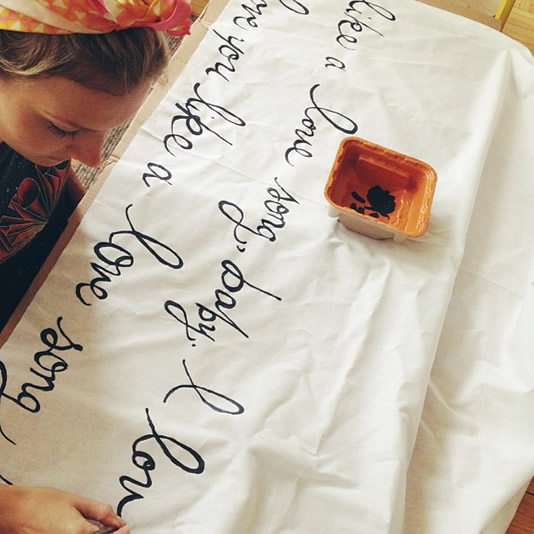 like a love song, baby. I lov
ove you like a love song